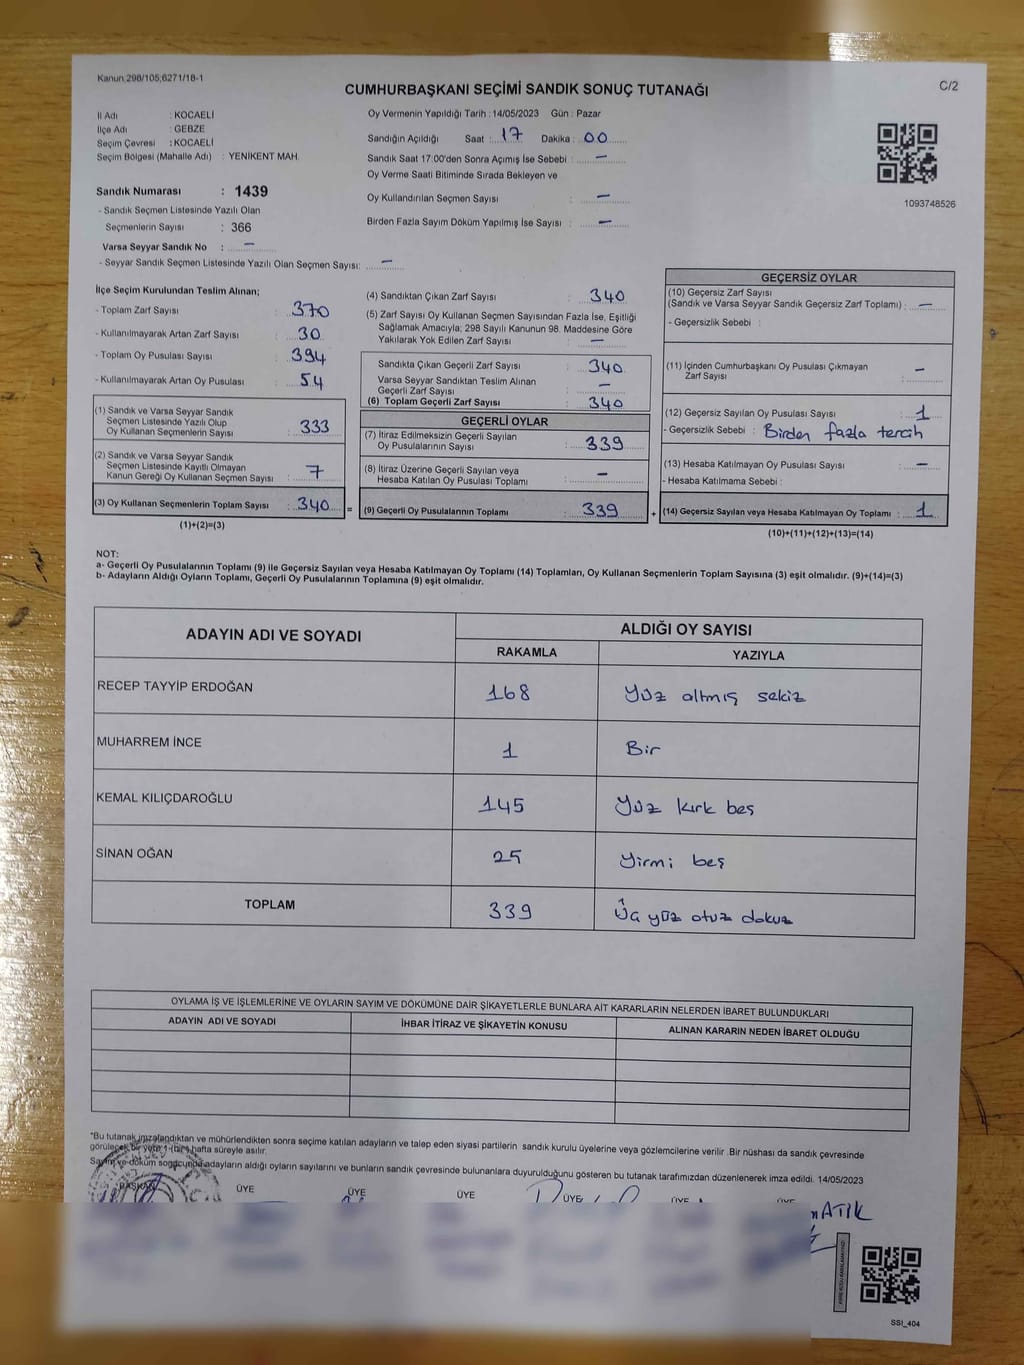 Kanun.298/105;6271/18-1
C/2
CUMHURBAŞKANI SEÇİMİ SANDIK SONUÇ TUTANAĞI
İl Adı : KOCAELİ
İlçe Adı : GEBZE
Seçim Çevresi : KOCAELİ
Seçim Bölgesi (Mahalle Adı) : YENİKENT MAH.
Sandık Numarası : 1439
- Sandık Seçmen Listesinde Yazılı Olan
Seçmenlerin Sayısı : 366
Varsa Seyyar Sandık No : -
- Seyyar Sandık Seçmen Listesinde Yazılı Olan Seçmen Sayısı: -
Oy Vermenin Yapıldığı Tarih : 14/05/2023 Gün : Pazar
Sandığın Açıldığı Saat : 17 Dakika : 00
Sandık Saat 17:00'den Sonra Açımış İse Sebebi : -
Oy Verme Saati Bitiminde Sırada Bekleyen ve
Oy Kullandırılan Seçmen Sayısı : -
Birden Fazla Sayım Döküm Yapılmış İse Sayısı : -
1093748526
İlçe Seçim Kurulundan Teslim Alınan;
- Toplam Zarf Sayısı : 370
- Kullanılmayarak Artan Zarf Sayısı : 30
- Toplam Oy Pusulası Sayısı : 394
- Kullanılmayarak Artan Oy Pusulası : 54
(1) Sandık ve Varsa Seyyar Sandık
Seçmen Listesinde Yazılı Olup
Oy Kullanan Seçmenlerin Sayısı : 333
(2) Sandık ve Varsa Seyyar Sandık
Seçmen Listesinde Kayıtlı Olmayan
Kanun Gereği Oy Kullanan Seçmen Sayısı : 7
(3) Oy Kullanan Seçmenlerin Toplam Sayısı : 340 =
(1)+(2)=(3)
(4) Sandıktan Çıkan Zarf Sayısı : 340
(5) Zarf Sayısı Oy Kullanan Seçmen Sayısından Fazla İse, Eşitliği
Sağlamak Amacıyla; 298 Sayılı Kanunun 98. Maddesine Göre
Yakılarak Yok Edilen Zarf Sayısı : -
Sandıkta Çıkan Geçerli Zarf Sayısı : 340
Varsa Seyyar Sandıktan Teslim Alınan
Geçerli Zarf Sayısı : -
(6) Toplam Geçerli Zarf Sayısı : 340
GEÇERLİ OYLAR
(7) İtiraz Edilmeksizin Geçerli Sayılan
Oy Pusulalarının Sayısı : 339
(8) İtiraz Üzerine Geçerli Sayılan veya
Hesaba Katılan Oy Pusulası Toplamı : -
(9) Geçerli Oy Pusulalarının Toplamı : 339 +
GEÇERSİZ OYLAR
(10) Geçersiz Zarf Sayısı
(Sandık ve Varsa Seyyar Sandık Geçersiz Zarf Toplamı) : -
- Geçersizlik Sebebi :
(11) İçinden Cumhurbaşkanı Oy Pusulası Çıkmayan
Zarf Sayısı : -
(12) Geçersiz Sayılan Oy Pusulası Sayısı : 1
- Geçersizlik Sebebi : Birden fazla tercih
(13) Hesaba Katılmayan Oy Pusulası Sayısı : -
- Hesaba Katılmama Sebebi :
(14) Geçersiz Sayılan veya Hesaba Katılmayan Oy Toplamı : 1
(10)+(11)+(12)+(13)=(14)
NOT:
a- Geçerli Oy Pusulalarının Toplamı (9) ile Geçersiz Sayılan veya Hesaba Katılmayan Oy Toplamı (14) Toplamları, Oy Kullanan Seçmenlerin Toplam Sayısına (3) eşit olmalıdır. (9)+(14)=(3)
b- Adayların Aldığı Oyların Toplamı, Geçerli Oy Pusulalarının Toplamına (9) eşit olmalıdır.
ADAYIN ADI VE SOYADI
ALDIĞI OY SAYISI
RAKAMLA YAZIYLA
RECEP TAYYİP ERDOĞAN 168 Yüz altmış sekiz
MUHARREM İNCE 1 Bir
KEMAL KILIÇDAROĞLU 145 Yüz kırk beş
SİNAN OĞAN 25 Yirmi beş
TOPLAM 339 Üç yüz otuz dokuz
OYLAMA İŞ VE İŞLEMLERİNE VE OYLARIN SAYIM VE DÖKÜMÜNE DAİR ŞİKAYETLERLE BUNLARA AİT KARARLARIN NELERDEN İBARET BULUNDUKLARI
ADAYIN ADI VE SOYADI İHBAR İTİRAZ VE ŞİKAYETİN KONUSU ALINAN KARARIN NEDEN İBARET OLDUĞU
*Bu tutanak imzalandıktan ve mühürlendikten sonra seçime katılan adayların ve talep eden siyasi partilerin sandık kurulu üyelerine veya gözlemcilerine verilir. Bir nüshası da sandık çevresinde
görülecek bir yere 1 (bir) hafta süreyle asılır.
Sayım ve döküm sonucunda adayların aldığı oyların sayılarını ve bunların sandık çevresinde bulunanlara duyurulduğunu gösteren bu tutanak tarafımızdan düzenlenerek imza edildi. 14/05/2023
BAŞKAN ÜYE ÜYE ÜYE ÜYE ÜYE ÜYE
SSI_404